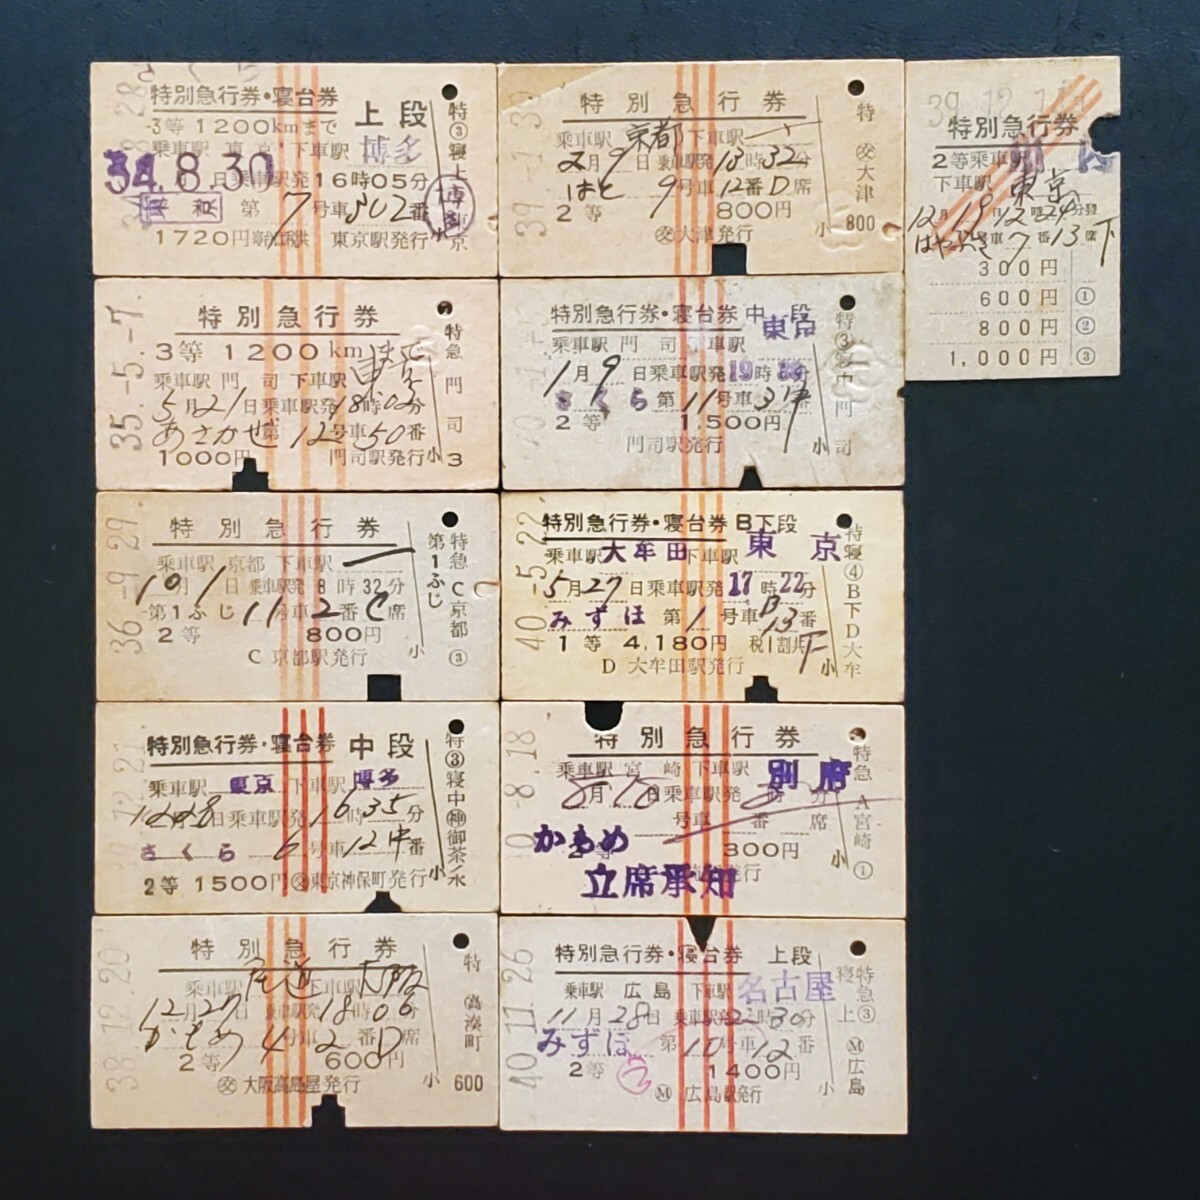 さくら
特別急行券・寝台券
上段
3等 1200kmまで
乗車駅 東京 下車駅 博多
34.8.30
日乗車駅発16時05分
第7号車 802番
1720円
東京駅発行
特③寝上 東京
小
特別急行券
3等 1200kmまで
乗車駅 門司 下車駅 東京
5月21日乗車駅発18時02分
あさかぜ第12号車50番
1000円 門司駅発行
小
特急 門司 3
35.-5.-7.
特別急行券
乗車駅 京都 下車駅 ー
10月1日 乗車駅発 8時32分
第1ふじ 11号車2番C席
2等 800円
C 京都駅発行
小
第1ふじ
特急C京都③
36.-9.29.
特別急行券・寝台券 中段
乗車駅 東京 下車駅 博多
12月28日乗車駅発16時35分
さくら 6号車12中番
2等 1500円 交東京神保町発行
小
特③寝中神御茶ノ水
12.21
特別急行券
乗車駅 尾道 下車駅 大阪
12月27日乗車駅発18時06分
かもめ 4号車2番D席
2等 600円
交大阪高島屋発行
小
特 高湊町
600
38.12.20
特別急行券
乗車駅 京都 下車駅 ー
2月9日乗車駅発13時32分
はと 9号車12番D席
2等 800円
交大津発行
小
特 交大津
800
39.-1.30
特別急行券・寝台券 中段
乗車駅 門司 下車駅 東京
1月9日乗車駅発19時
さくら 第11号車3中
2等 1,500円
門司駅発行
小
特③寝中門司
特別急行券・寝台券 B下段
乗車駅 大牟田 下車駅 東京
5月27日乗車駅発17時22分
みずほ 第1号車B13番
下
1等 4,180円 税1割共
D 大牟田駅発行
小
特寝④B下D大牟
40.-5.22
特別急行券
乗車駅 宮崎 下車駅 別府
8月18日乗車駅発 時 分
号車 番 席
かもめ
2等 300円
立席承知
小
特急 A宮崎①
0.-8.18
特別急行券・寝台券 上段
乗車駅 広島 下車駅 名古屋
11月28日 乗車駅発22時30分
みずほ 第10号車12番
2等 1400円
M 広島駅発行
小
特急③寝上M広島
40.11.26
39.12.1
特別急行券
2等乗車駅
下車駅 東京
12月19日12時24分発
はやぶさ 号車7番13席 下
300円
600円 ①
800円 ②
1,000円 ③